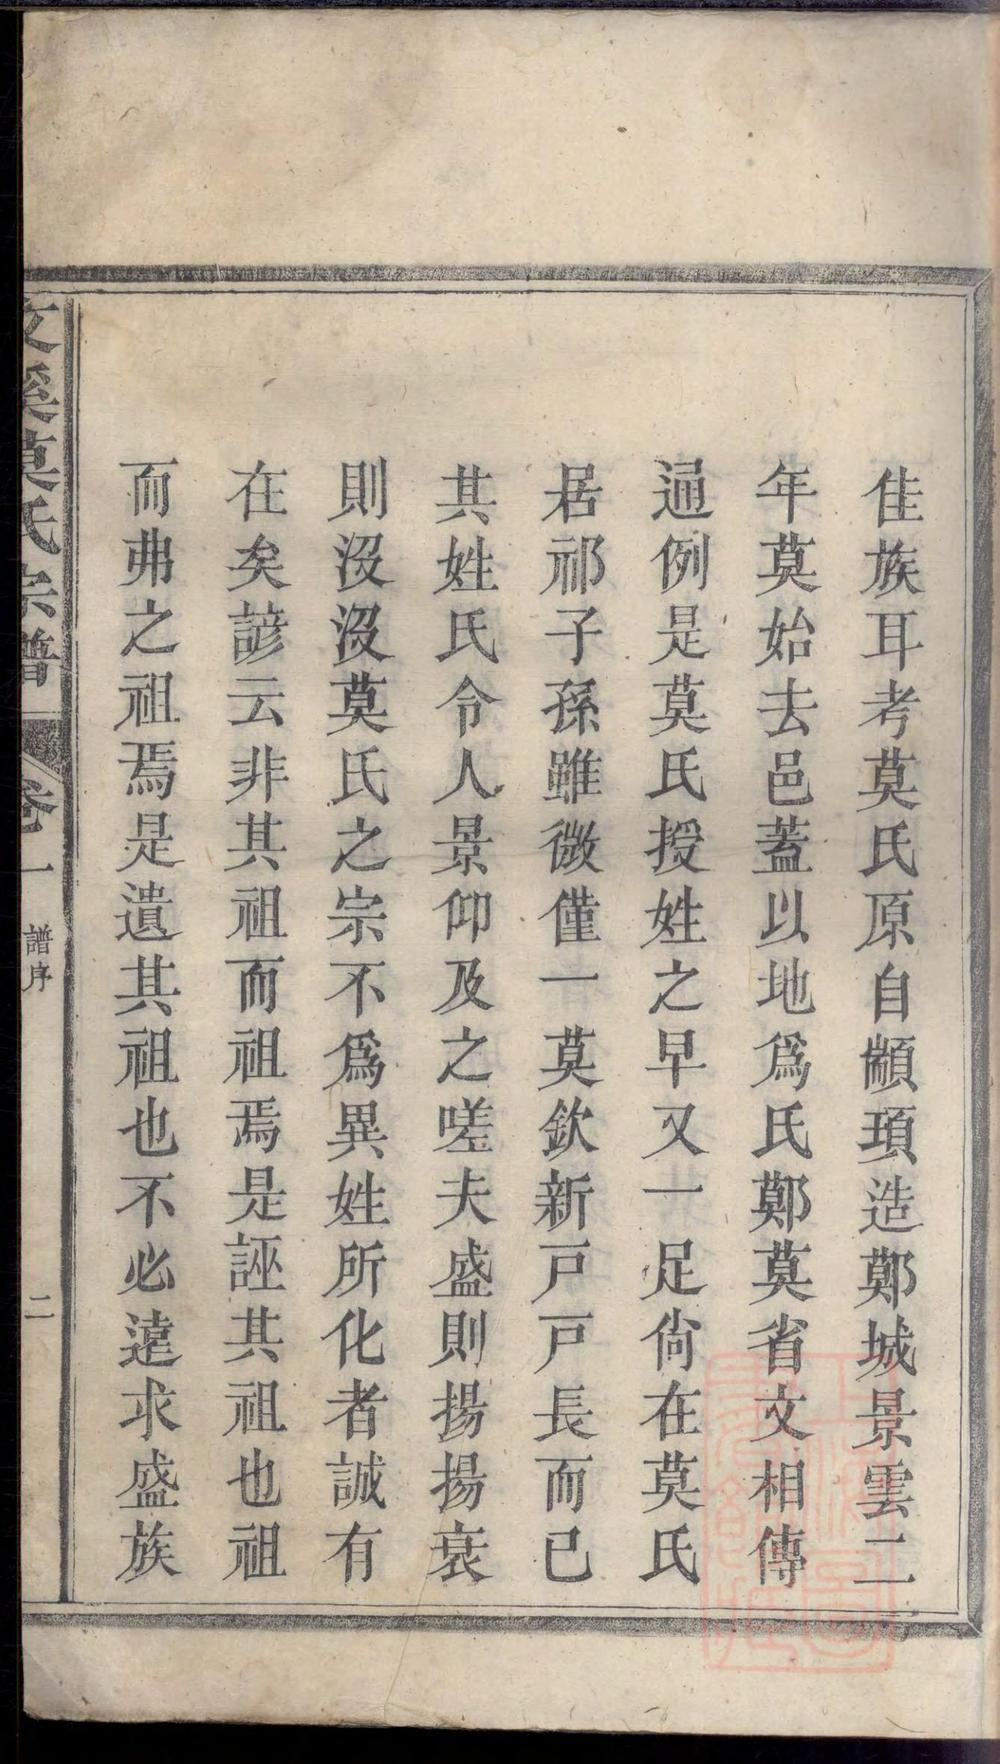 佳族耳考莫氏原自顓頊造鄚城景雲二
年莫始去邑蓋以地爲氏鄚莫省文相傳
通例是莫氏授姓之早又一足尙在莫氏
居祁子孫雖微僅一莫欽新戸戸長而已
其姓氏令人景仰及之嗟夫盛則揚揚衰
則沒沒莫氏之宗不爲異姓所化者誠有
在矣諺云非其祖而祖焉是誣其祖也祖
而弗之祖焉是遺其祖也不必遠求盛族
文溪莫氏宗譜 卷一 譜序 二